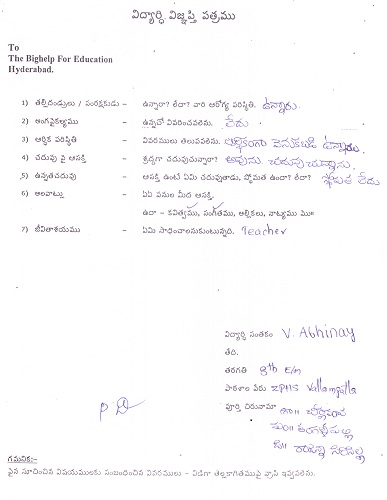 విద్యార్థి విజ్ఞప్తి పత్రము
To
The Bighelp For Education
Hyderabad.
1) తల్లిదండ్రులు / సంరక్షకుడు - ఉన్నారా? లేదా? వారి ఆరోగ్య పరిస్థితి. ఉన్నారు.
2) అంగవైకల్యము - ఉన్నచో వివరించవలెను. లేదు
3) ఆర్థిక పరిస్థితి - వివరములు తెలుపవలెను. ఆర్థికంగా వెనుకబడి ఉన్నారు.
4) చదువు పై ఆసక్తి - శ్రద్ధగా చదువుచున్నారా? అవును. చదువుచున్నాను.
5) ఉన్నతచదువు - ఆసక్తి ఉంటే ఏమి చదువుతాడు, స్తోమత ఉందా? లేదా? స్తోమత లేదు
6) అలవాట్లు - ఏఏ పనుల మీద ఆసక్తి.
ఉదా - కవిత్వము, సంగీతము, అల్లికలు, నాట్యము ము॥
7) జీవితాశయము - ఏమి సాధించాలనుకుంటున్నది. Teacher
విద్యార్థి సంతకం V. Abhinay
తేది.
తరగతి 8th E/m
పాఠశాల పేరు ZPHS
పూర్తి చిరునామా
P.D
గమనిక:-
పైన సూచించిన విషయములకు సంబంధించిన వివరములు - విడిగా తెల్లకాగితముపై వ్రాసి ఇవ్వవలెను.